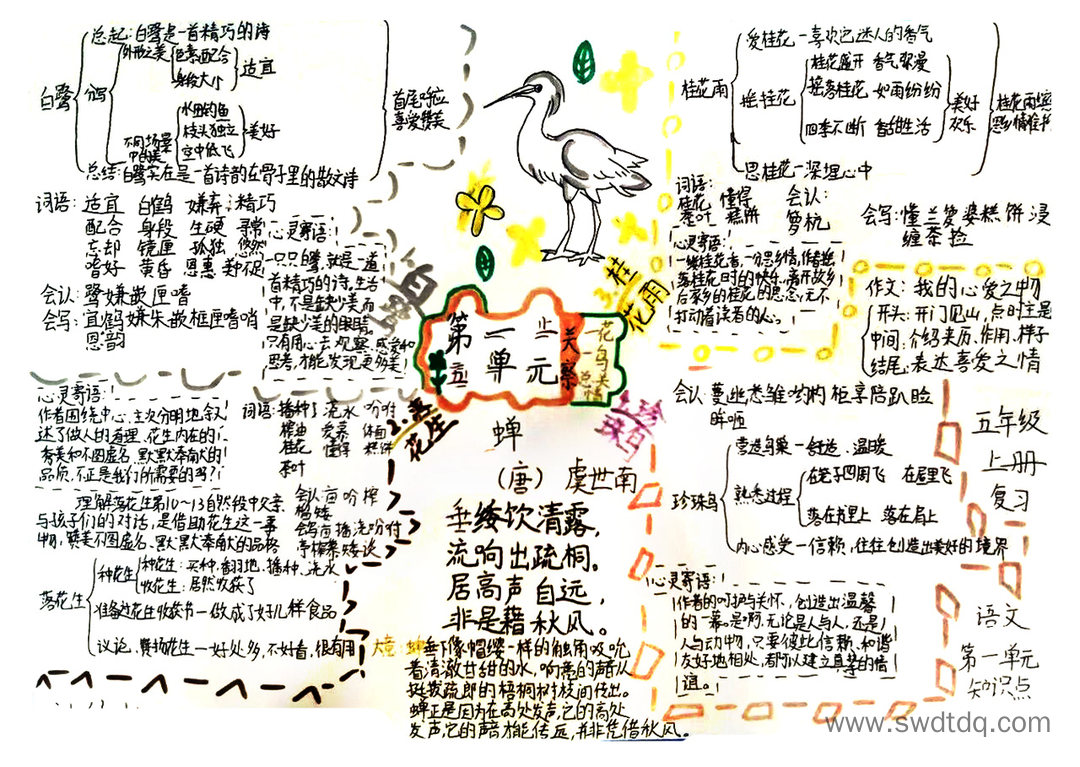 总起：白鹭是一首精巧的诗
外形之美
色素配合
身段大小
适宜
白鹭
分写
不同场景中的美
水田钓鱼
枝头独立
空中低飞
美好
首尾呼应
喜爱赞美
总结：白鹭实在是一首诗韵在骨子里的散文诗
词语：适宜 白鹤 嫌弃 精巧
配合 身段 生硬 寻常
忘却 镜匣 孤独 悠然
嗜好 黄昏 恩惠 美中不足
会认：鹭嫌嵌匣嗜
会写：宜鹤嫌朱嵌框匣嗜哨
恩韵
心灵寄语：
一只白鹭，就是一道
首精巧的诗，生活
中，不是缺少美而
是缺少美的眼睛。
只有用心去观察，感受和
思考，才能发现更多美！
爱桂花—喜欢它迷人的香气
桂花雨
摇桂花
桂花盛开 香气弥漫
摇落桂花 如雨纷纷
四季不断 香甜生活
美好
欢乐
思桂花—深埋心中
词语：
桂花 懂得
茶叶 糕饼
会认：
箩杭
会写：懂兰箩婆糕饼浸
缠茶捡
心灵寄语：
一缕桂花香，一份思乡情，作者把
落桂花时的快乐，离开故乡
后家乡的桂花的思念，无不
打动着读者的人心。
作文：我的心爱之物
开头：开门见山，点明主旨
中间：介绍来历、作用、样子
结尾：表达喜爱之情
1.白鹭
3.桂花雨
第一单元
关察
花鸟关情
2.落花生
4.珍珠鸟
心灵寄语：
作者围绕中心，主次分明地叙
述了做人的道理，花生内在的
优美和不图虚名、默默奉献的
品质，不正是我们所需要的吗？
词语：播种 浇水 吩咐
榨油 爱慕 体面
桂花 懂得 糕饼
茶叶
理解落花生第10～13自然段中父亲
与孩子们的对话，是借助花生这一事
物，赞美不图虚名、默默奉献的品格
会认亩吩榨
慕矮
会写亩播浇吩咐
亭榨慕矮谈
落花生
种花生
种花生：买种、翻地、播种、浇水
收花生：居然收获了
准备过花生收获节—做成了好几样食品
议论、赞扬花生—好处多，不好看，很有用
蝉
（唐）虞世南
垂緌饮清露，
流响出疏桐。
居高声自远，
非是藉秋风。
大意：蝉垂下像帽缨一样的触角吸吮
着清澈甘甜的水，响亮的声音从
挺拔疏朗的梧桐树枝间传出。
蝉正是因为在高处发声，它的高处
发声它的声音才能传远，并非凭借秋风。
会认 蔓幽 柜享陪趴脸
眸咂
珍珠鸟
营造鸟巢—舒适、温暖
熟悉过程
在笼子四周飞 在屋里飞
落在肩上
内心感受—信赖，往往创造出美好的境界
心灵寄语：
作者的呵护与关怀，创造出温馨
的一幕。是啊，无论是人与人，还是
人与动物，只要彼此信赖、和谐
友好地相处，都可以建立真挚的情
谊。
五年级
上册
复习
语文
第一单元
知识点
www.swdtdq.com